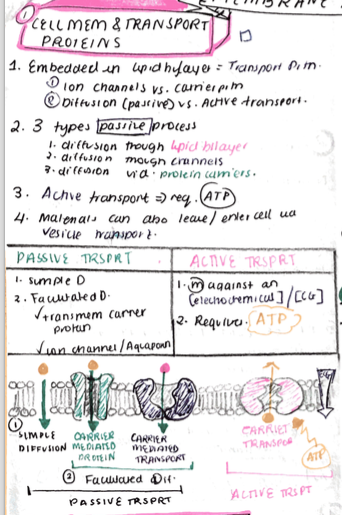 ① CELL MEM & TRANSPORT
PROTEINS
1. Embedded in lipid bilayer = Transport
① Ion channels vs. carrier
② Diffusion (passive) vs. Active transport.
2. 3 types passive process
1. diffusion though lipid bilayer
2. diffusion through channels
3. diffusion via protein carriers.
3. Active transport => req. ATP
4. Materials can also leave/enter cell via
vesicle transport.
PASSIVE TRSPRT
1. simple D
2. Facilitated D.
✓ transmem carrier
protein
✓ ion channel / Aquaporin
ACTIVE TRSPRT
1. m against an
[electrochemical] / [CG]
2. Requires ATP
①
SIMPLE
DIFFUSION
CARRIER
MEDIATED
PROTEIN
CARRIER
MEDIATED
TRANSPORT
CARRIER
TRANSPOR
ATP
② Facilitated Dif.
PASSIVE TRSPRT
ACTIVE TRSPT